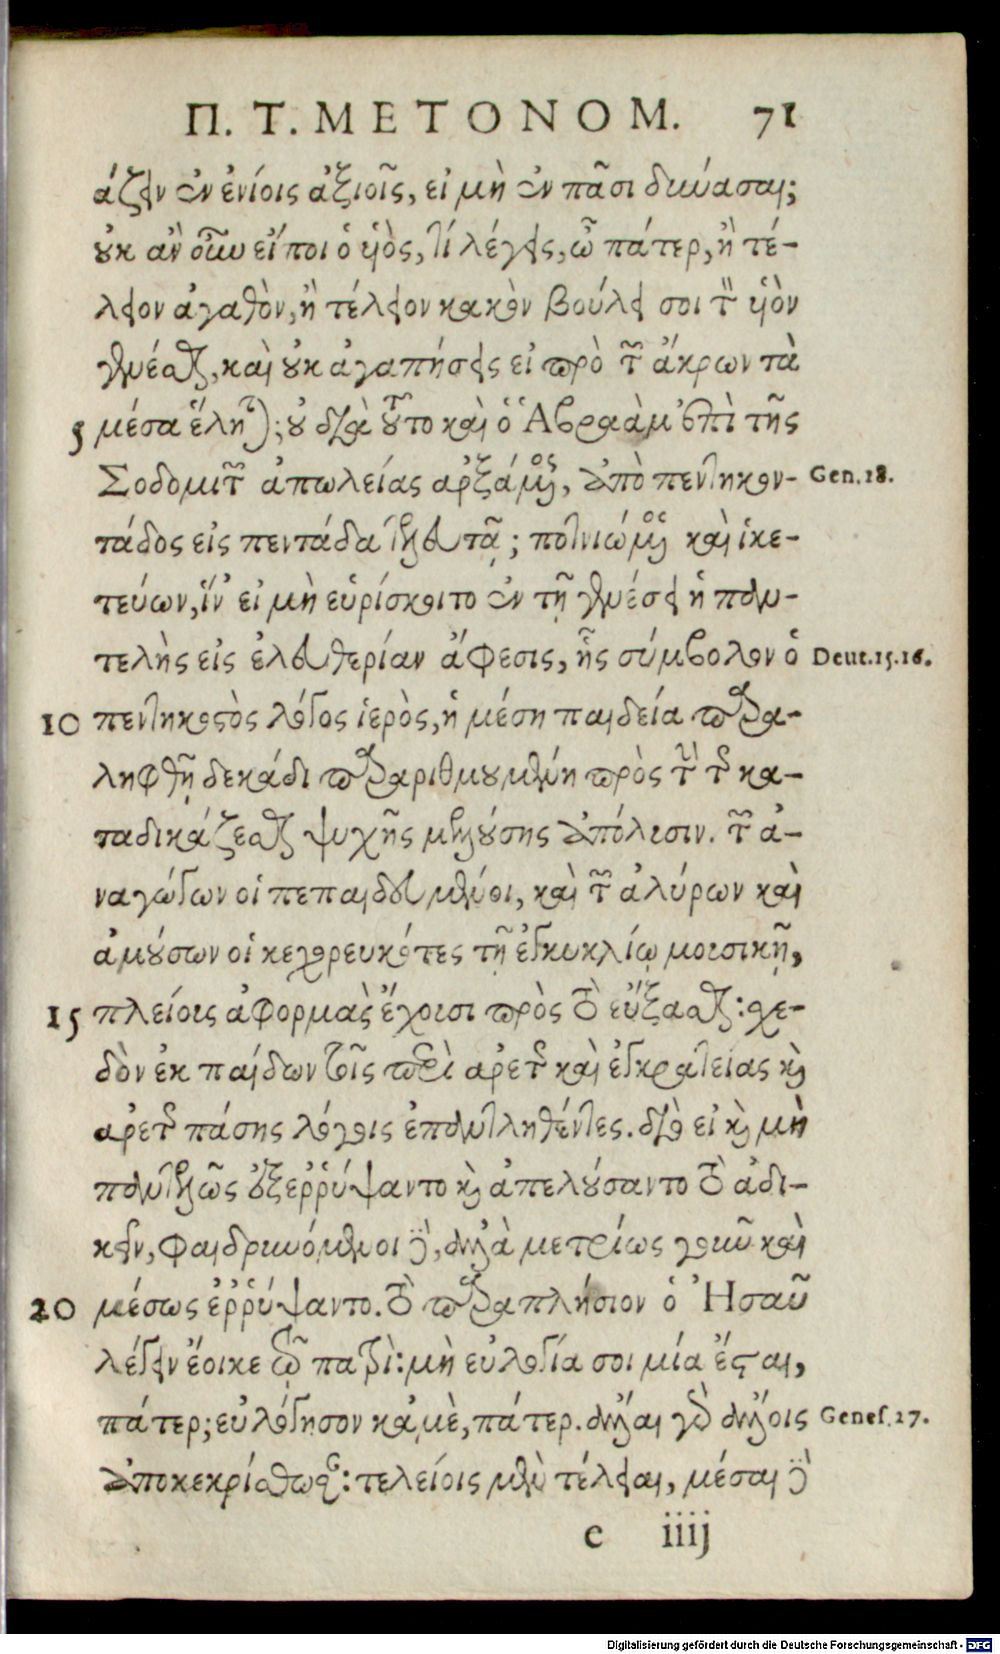 Π. Τ. ΜΕΤΟΝΟΜ. 71
άζειν ἐν ἐνίοις ἀξιοῖς, εἰ μὴ ἐν πᾶσι δυνάσαι;
οὐκ ἂν οὖν εἴποι ὁ υἱὸς, τί λέγεις, ὦ πάτερ, ἢ τέ-
λειον ἀγαθὸν, ἢ τέλειον κακὸν βούλει σοι τὸν υἱὸν
γενέσθαι, καὶ οὐκ ἀγαπήσεις εἰ πρὸ τῶν ἄκρων τὰ
5 μέσα ἕληται; οὐ διὰ τοῦτο καὶ ὁ Ἀβραὰμ ἐπὶ τῆς
Σοδομιτῶν ἀπωλείας ἀρξάμενος, ἀπὸ πεντηκον- Gen. 18.
τάδος εἰς πεντάδα τελευτᾷ; ποτνιώμενος καὶ ἱκε-
τεύων, ἵν' εἰ μὴ εὑρίσκοιτο ἐν τῇ γενέσει ἡ παν-
τελὴς εἰς ἐλευθερίαν ἄφεσις, ἧς σύμβολον ὁ Deut. 15. 16.
10 πεντηκοστὸς λόγος ἱερὸς, ἡ μέση παιδεία παρα-
ληφθῇ δεκάδι παραριθμουμένη πρὸς τὴν τῆς κα-
ταδικάζεσθαι ψυχῆς μελλούσης ἀπόλυσιν. τῶν ἀ-
ναγώγων οἱ πεπαιδευμένοι, καὶ τῶν ἀλύρων καὶ
ἀμούσων οἱ κεχορευκότες τῇ ἐγκυκλίῳ μουσικῇ,
15 πλείους ἀφορμὰς ἔχουσι πρὸς τὸ εὔξασθαι: σχε-
δὸν ἐκ παίδων τοῖς περὶ ἀρετῆς καὶ ἐγκρατείας καὶ
ἀρετῆς πάσης λόγοις ἐπαντληθέντες. διὸ εἰ καὶ μὴ
παντελῶς ἐξερρύψαντο καὶ ἀπελούσαντο τὸ ἀδι-
κεῖν, φαιδρυνόμενοι δὲ, ἀλλὰ μετρίως γοῦν καὶ
20 μέσως ἐρρύψαντο. τὸ παραπλήσιον ὁ Ἠσαῦ
λέγειν ἔοικε τῷ πατρί: μὴ εὐλογία σοι μία ἔσται,
πάτερ; εὐλόγησον κἀμὲ, πάτερ. ἄλλαι γὰρ ἄλλοις Genes. 27.
ἀποκεκρίσθωσαν: τελείοις μὲν τέλειαι, μέσαι δὲ
e iiij
Digitalisierung gefördert durch die Deutsche Forschungsgemeinschaft - DFG